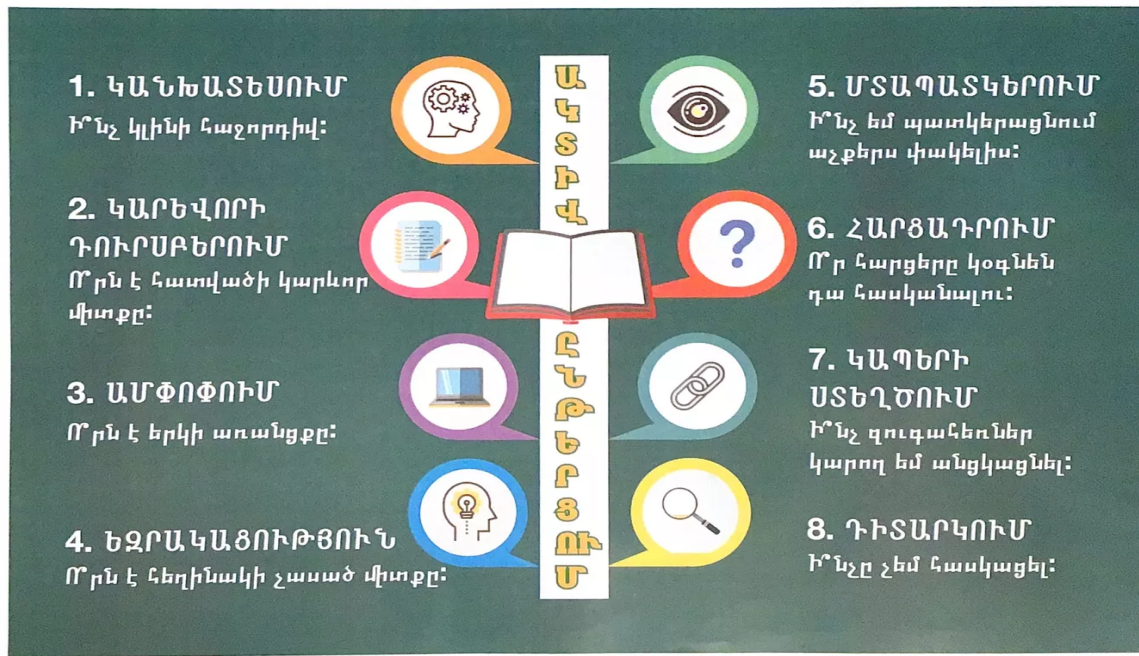 1. ԿԱՆԽԱՏԵՍՈՒՄ
Ի՞նչ կլինի հաջորդիվ:
2. ԿԱՐԵՎՈՐԻ
ԴՈՒՐՍԲԵՐՈՒՄ
Ո՞րն է հատվածի կարևոր
միտքը:
3. ԱՄՓՈՓՈՒՄ
Ո՞րն է երկի առանցքը:
4. ԵԶՐԱԿԱՑՈՒԹՅՈՒՆ
Ո՞րն է հեղինակի չասած միտքը:
ԱԿՏԻՎ
ԸՆԹԵՐՑՈՒՄ
5. ՄՏԱՊԱՏԿԵՐՈՒՄ
Ի՞նչ եմ պատկերացնում
աչքերս փակելիս:
6. ՀԱՐՑԱԴՐՈՒՄ
Ո՞ր հարցերը կօգնեն
դա հասկանալու:
7. ԿԱՊԵՐԻ
ՍՏԵՂԾՈՒՄ
Ի՞նչ զուգահեռներ
կարող եմ անցկացնել:
8. ԴԻՏԱՐԿՈՒՄ
Ի՞նչը չեմ հասկացել: